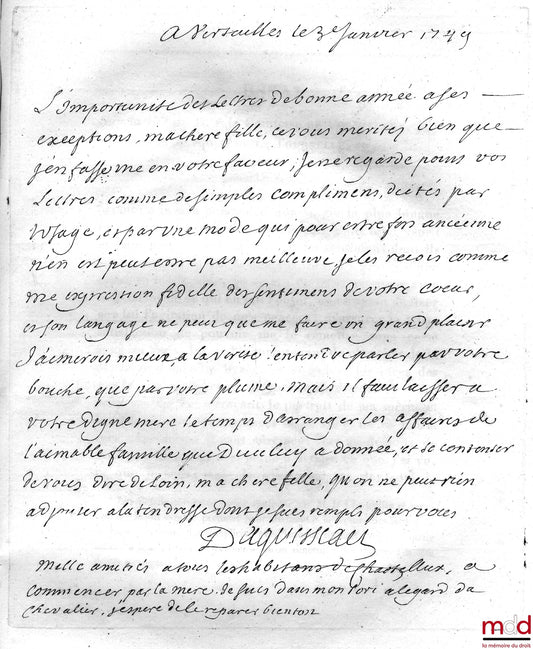 A Versailles le 3e Janvier 1749
L'importunité des Lettres de bonne année a ses
exceptions, ma chere fille, et vous merités bien que
j'en fasse une en votre faveur; Je ne regarde point vos
Lettres comme de simples complimens, dictés par
l'Usage, et par une mode qui pour estre fort ancienne
n'en est peutestre pas meilleure, je les recois comme
une expression fidelle des sentimens de votre coeur,
et son langage ne peut que me faire un grand plaisir
J'aimerois mieux, a la verité l'entendre parler par votre
bouche, que par votre plume. Mais il faut laisser a
votre digne mere le temps d'arranger les affaires de
l'aimable famille que Dieu luy a donnée, et se contenter
de vous dire de loin, ma chere fille, qu'on ne peut rien
adjouter a la tendresse dont je suis rempli pour vous
Daguesseau
Mille amitiés a tous les habitans de Chastellux, a
commencer par la mere. Je suis dans mon tort a l'egard du
chevalier, j'espere de le reparer bientost
mdd
la mémoire du droit